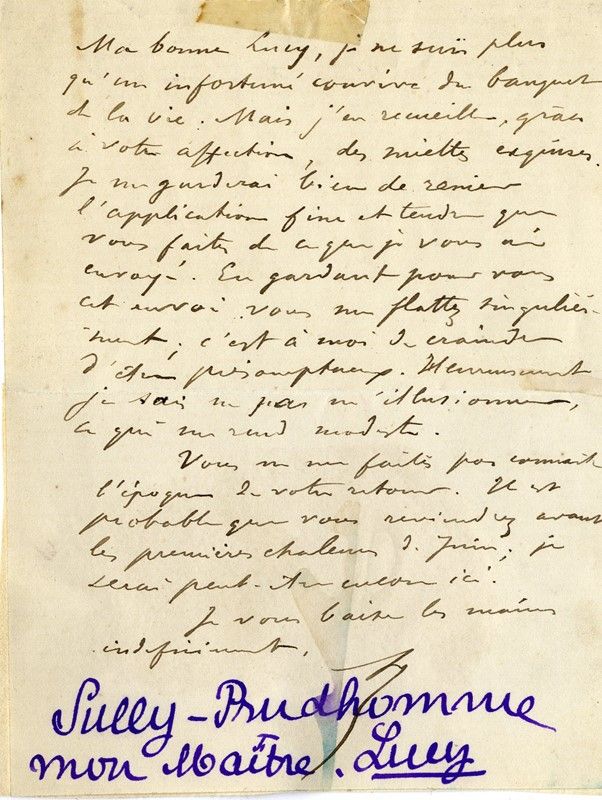 Ma bonne Lucy, je ne suis plus
qu'un infortuné convive du banquet
de la vie. Mais j'en recueille, grâce
à votre affection, des miettes exquises.
Je me garderai bien de renier
l'application fine et tendre que
vous faites de ce que je vous ai
envoyé. En gardant pour vous
cet envoi vous me flattez singuliè-
rement; c'est à moi de craindre
d'être présomptueux. Heureusement
je sais ne pas m'illusionner,
ce qui me rend modeste.
Vous ne me faites pas connaître
l'époque de votre retour. Il est
probable que vous reviendrez avant
les premières chaleurs de Juin; je
serai peut-être encore ici.
Je vous baise les mains
indéfiniment.
Sully-Prudhomme
mon Maître. Lucy